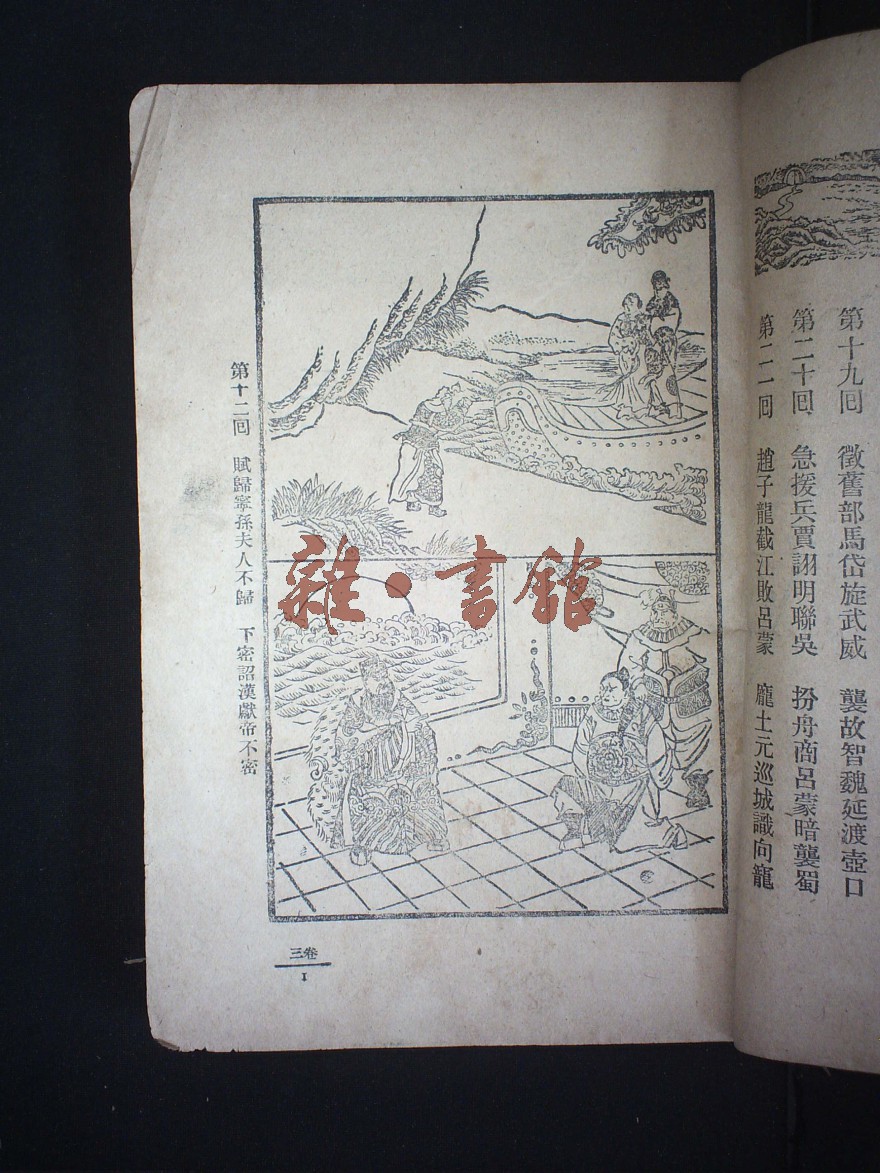 第十九回　徵舊部馬岱旋武威　襲故智魏延渡壺口
第二十回　急援兵賈詡明聯吳　扮舟商呂蒙暗襲蜀
第二一回　趙子龍截江敗呂蒙　龐士元巡城識向寵
雜·書館
第十二回　賦歸寧孫夫人不歸　下密詔漢獻帝不密
三卷
1